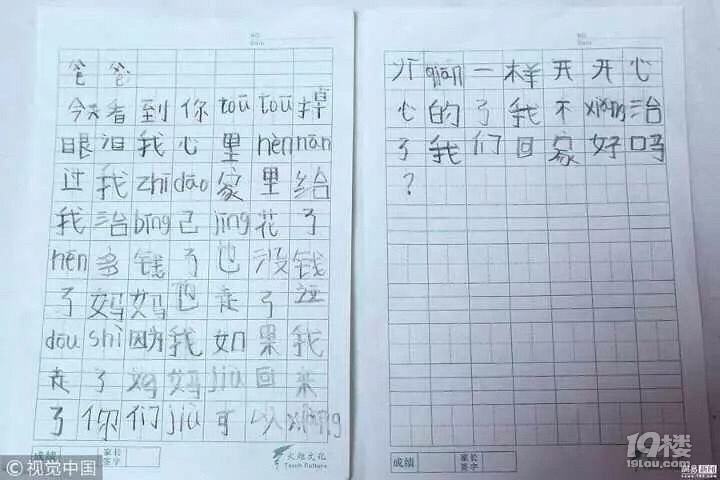 NO.
Date
爸爸
今天看到你toū toū掉
眼泪我心里hèn nān
过我zhī dāo家里给
我治bīng已jīng花了
hēn多钱了也没钱
了妈妈也走了这
doū shì因为我如果我
走了妈妈jiù回来
了你们jiù可以xiàng
成绩
家长
签字
火炬文化
Torch Culture
NO.
Date
以qián一样开开心
心的了我不xiǎng治
了我们回家好吗
?
成绩
家长
签字
©视觉中国
19楼
19lou.com